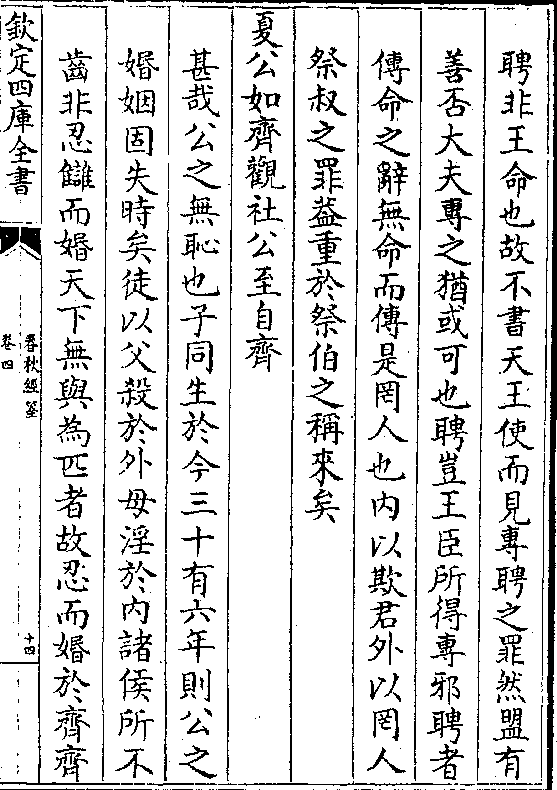 聘非王命也故不書天王使而見專聘之罪然盟有
善否大夫專之猶或可也聘豈王臣所得專邪聘者
傳命之辭無命而傳是罔人也内以欺君外以罔人
祭叔之罪葢重於祭伯之稱來矣
夏公如齊觀社公至自齊
甚哉公之無恥也子同生於今三十有六年則公之
婚姻固失時矣徒以父殺於外母淫於内諸侯所不
齒非忍讎而婚天下無與為匹者故忍而婚於齊齊
欽定四庫全書
春秋經筌
卷四
十四